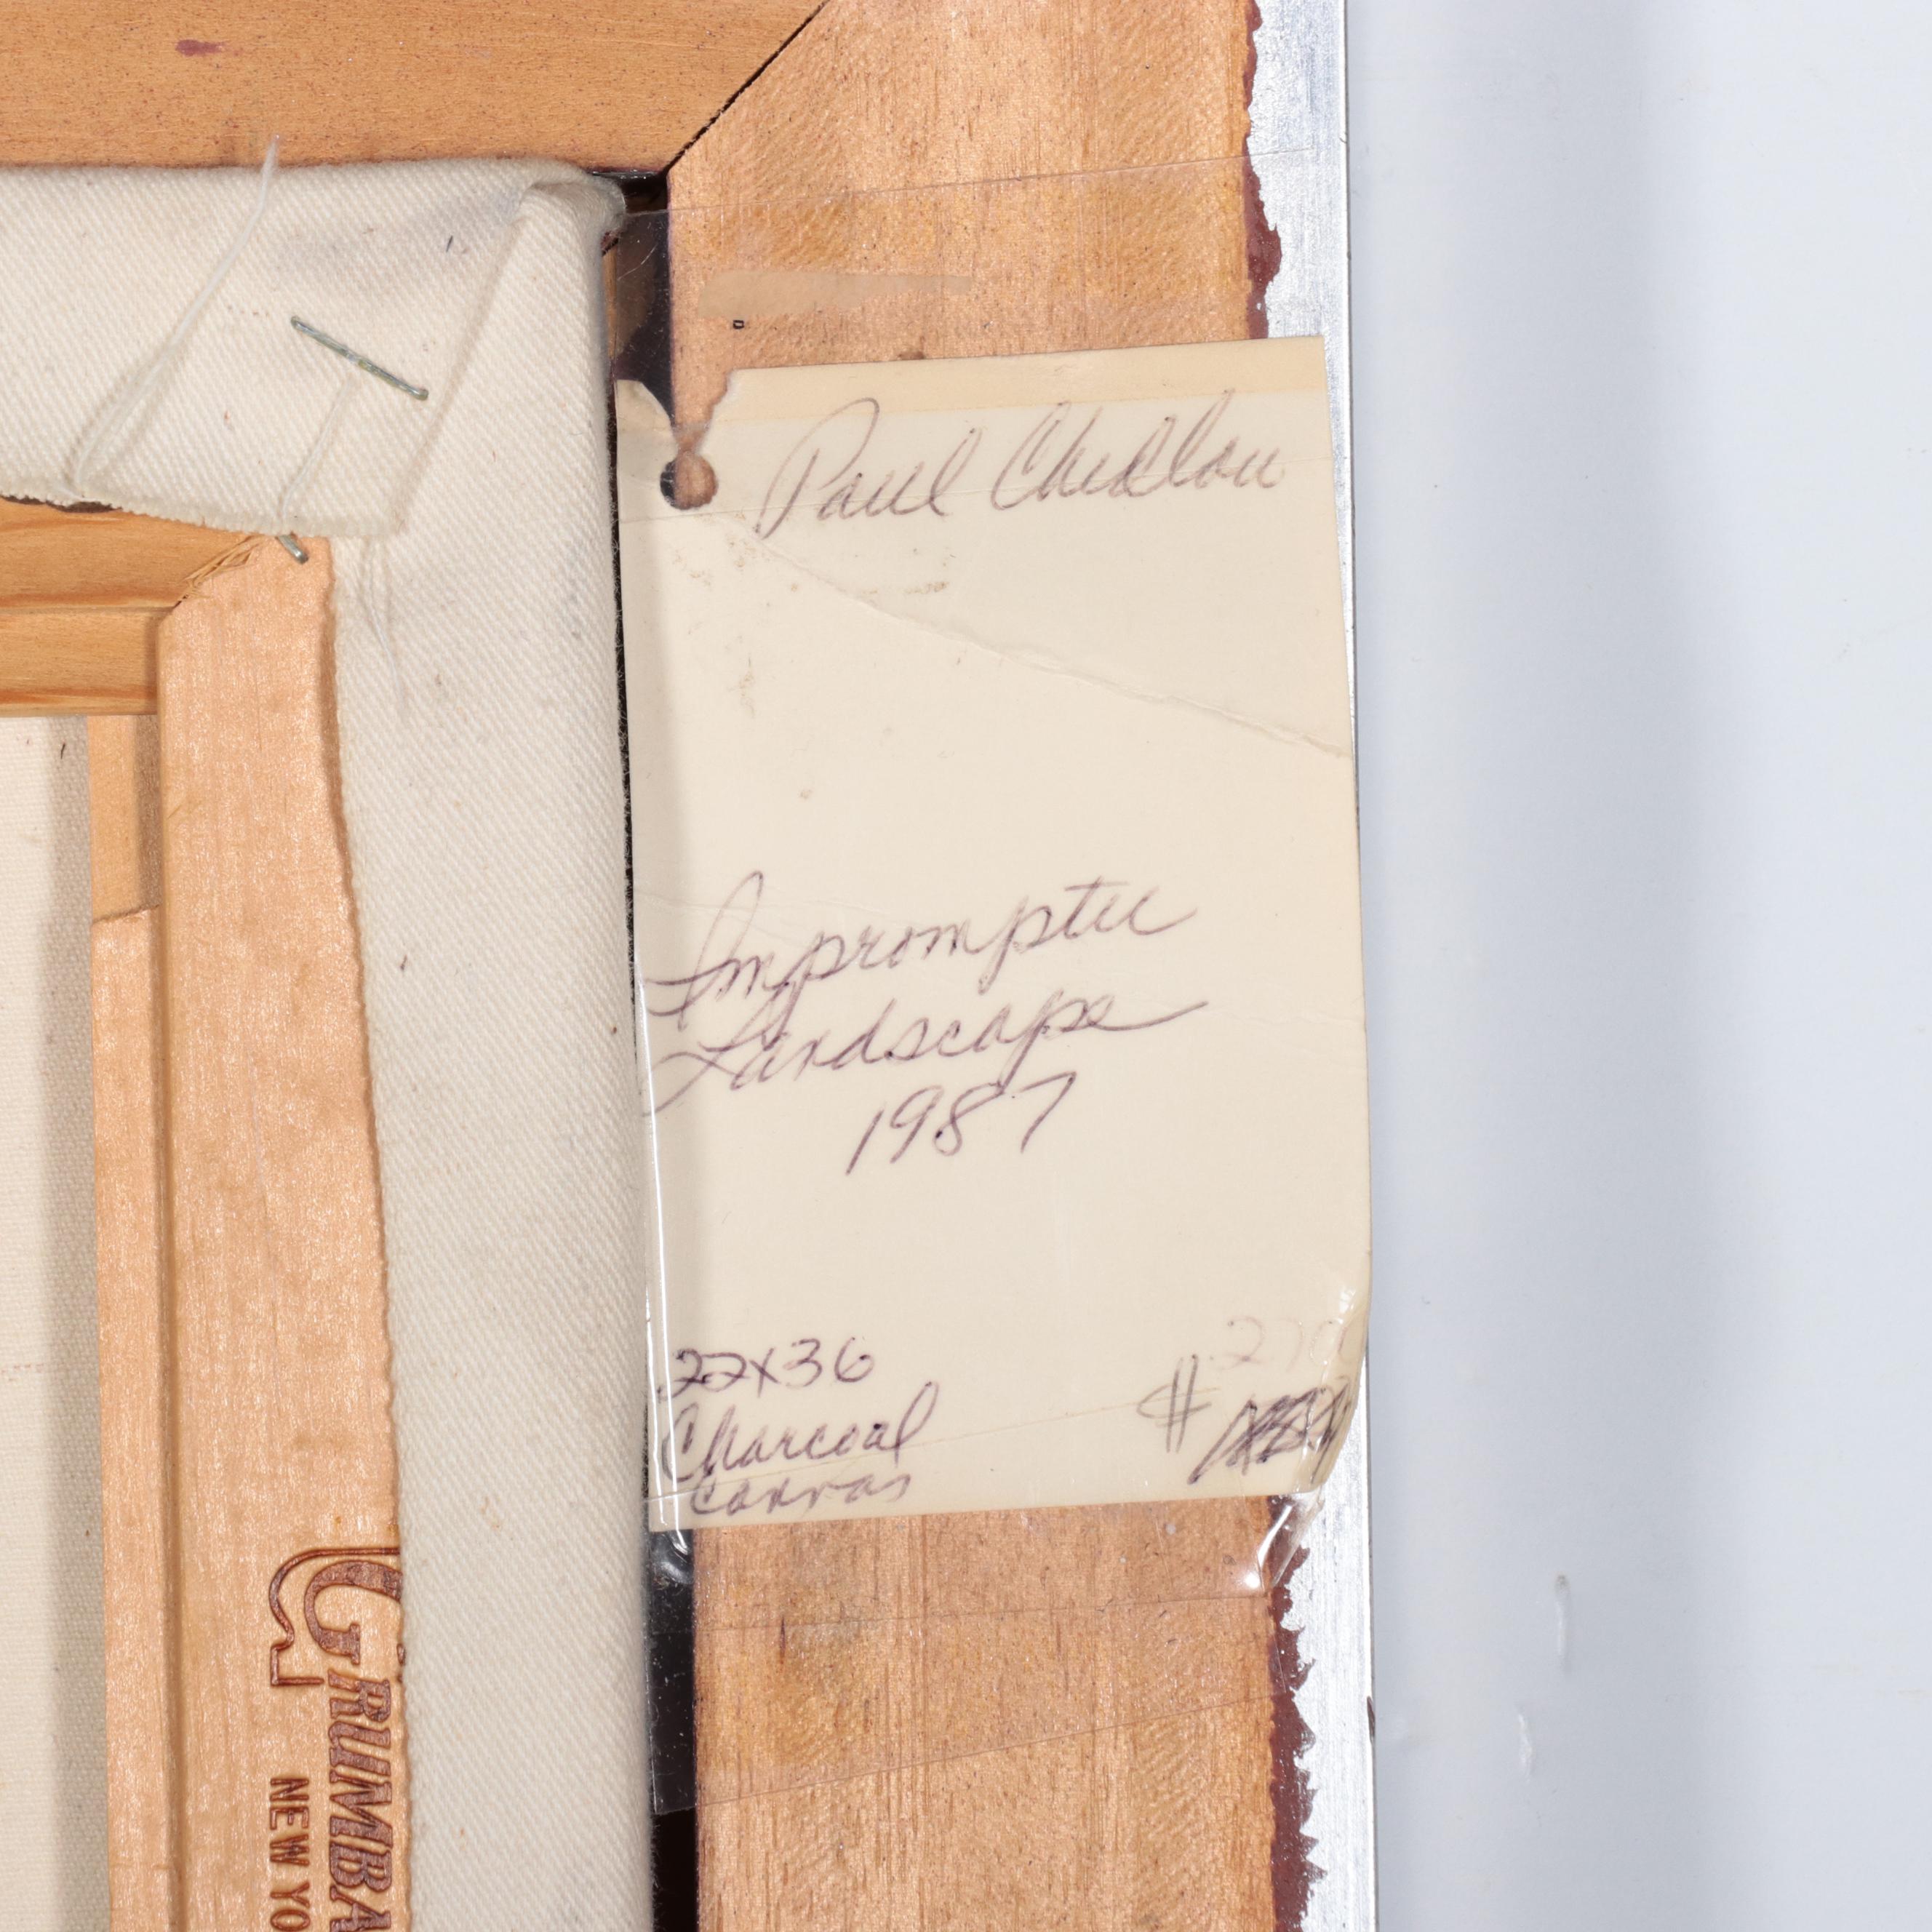 Paul Chidlaw
Impromptu
Landscape
1987
22x36
Charcoal
Canvas
$
270
GRUMBA
NEW YO